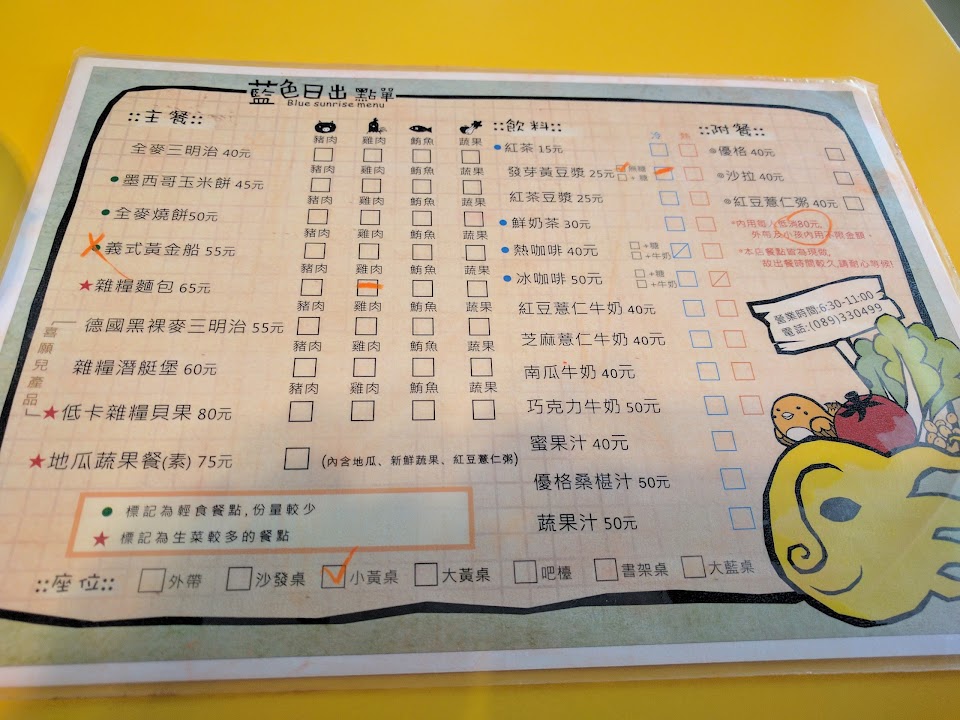 藍色日出 點單
Blue sunrise menu
::主餐::
豬肉 雞肉 鮪魚 蔬果
全麥三明治 40元
豬肉 雞肉 鮪魚 蔬果
●墨西哥玉米餅 45元
豬肉 雞肉 鮪魚 蔬果
●全麥燒餅50元
豬肉 雞肉 鮪魚 蔬果
●義式黃金船 55元
豬肉 雞肉 鮪魚 蔬果
★雜糧麵包 65元
豬肉 雞肉 鮪魚 蔬果
德國黑裸麥三明治 55元
豬肉 雞肉 鮪魚 蔬果
雜糧潛艇堡 60元
豬肉 雞肉 鮪魚 蔬果
★低卡雜糧貝果 80元
★地瓜蔬果餐(素) 75元
(內含地瓜、新鮮蔬果、紅豆薏仁粥)
喜願兒產品」
● 標記為輕食餐點,份量較少
★ 標記為生菜較多的餐點
::飲料::
冷 熱
●紅茶 15元
發芽黃豆漿 25元 無糖
+糖
紅茶豆漿 25元
●鮮奶茶 30元
●熱咖啡 40元 +糖
+牛奶
●冰咖啡 50元 +糖
+牛奶
紅豆薏仁牛奶 40元
芝麻薏仁牛奶 40元
南瓜牛奶 40元
巧克力牛奶 50元
蜜果汁 40元
優格桑椹汁 50元
蔬果汁 50元
::附餐::
●優格 40元
●沙拉 40元
●紅豆薏仁粥 40元
*內用每人低消80元,
外帶及小孩內用不限金額。
*本店餐點皆為現做,
故出餐時間較久,請耐心等候!
營業時間:6:30-11:00
電話:(089)330499
::座位:: 外帶 沙發桌 小黃桌 大黃桌 吧檯 書架桌 大藍桌